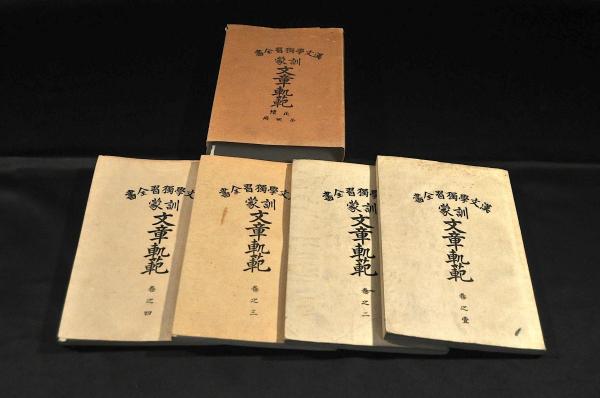 漢文學獨習全書
訓蒙
文章軌範
正續
漢文學獨習全書
訓蒙
文章軌範
卷之壹
文學獨習全書
訓蒙
文章軌範
卷之二
文學獨習全書
訓蒙
文章軌範
卷之三
文學獨習全書
訓蒙
文章軌範
卷之四